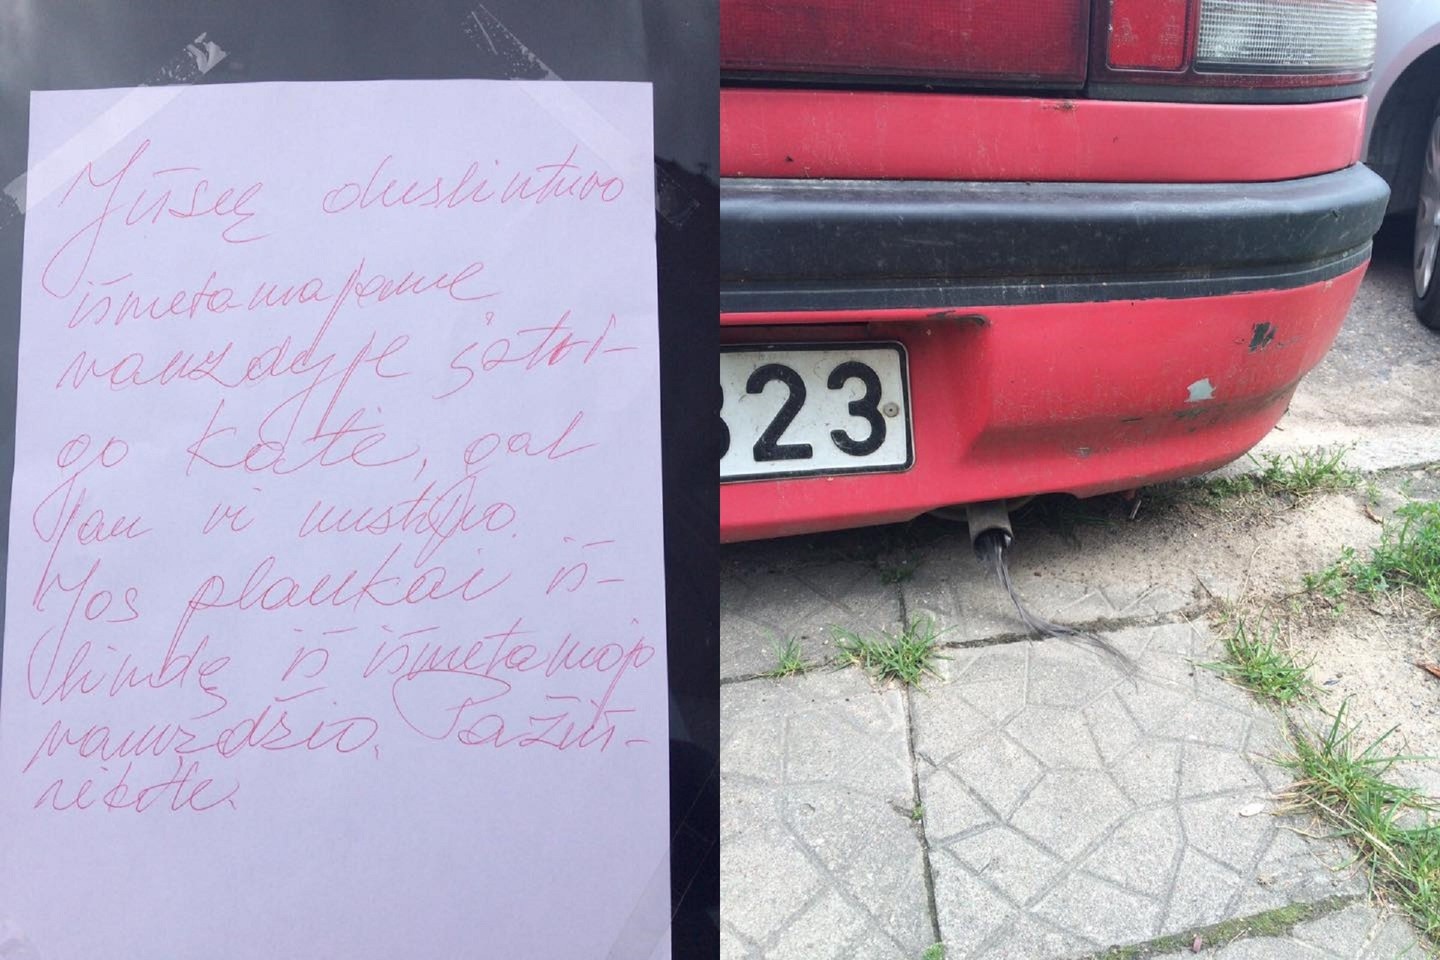 Jūsų duslintuvo
išmetamajame
vamzdyje įstri-
go katė, gal
jau ir nustipo.
Jos plaukai iš-
lindę iš išmetamojo
vamzdžio. Pažiū-
rėkite.
323